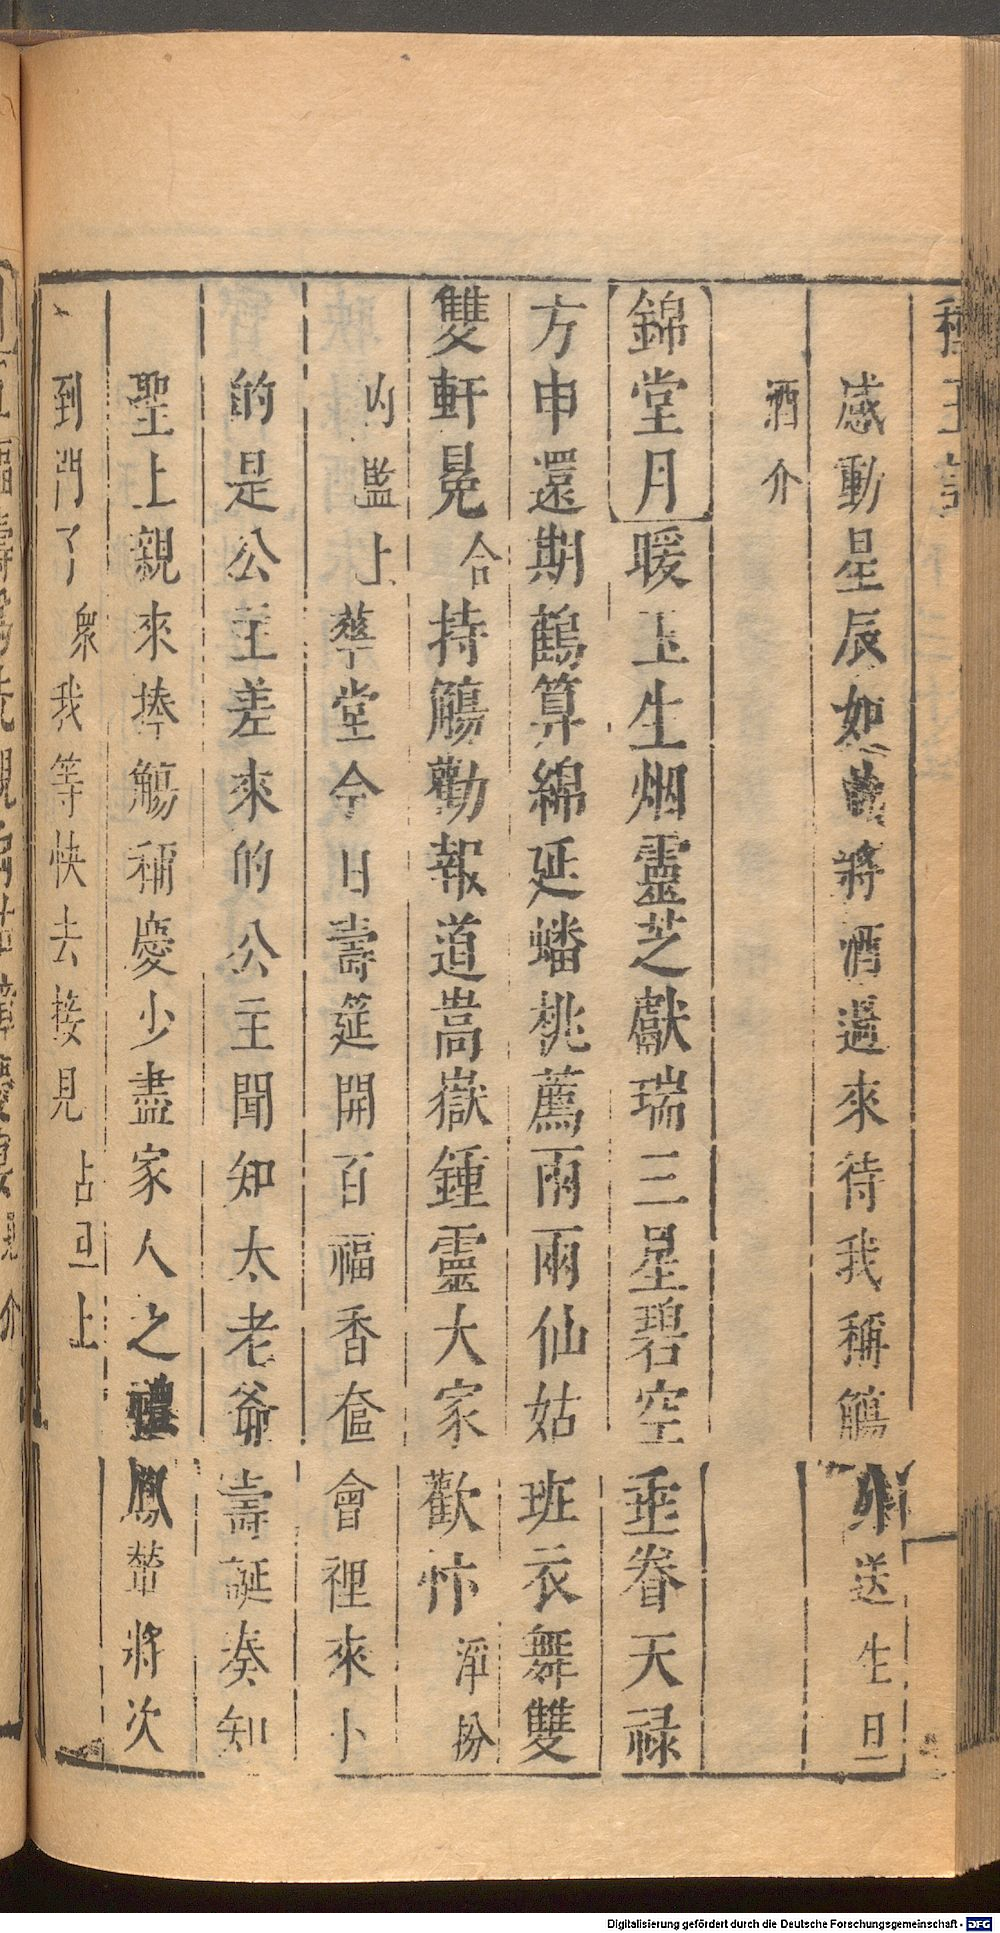 感動星辰如將酒過來待我稱觴送生旦
酒介
錦堂月暖玉生烟靈芝獻瑞三星碧空垂眷天祿
方申還期鶴算綿延蟠桃薦兩兩仙姑班衣舞雙
雙軒冕合持觴勸報道嵩嶽鍾靈大家歡忭淨扮
内監上華堂今日壽筵開百福香奩會裡來卜
的是公主差來的公主聞知太老爺壽誕奏知
聖上親來捧觴稱慶少盡家人之禮鳳輦將次
到門了衆我等快去接見占丑上
Digitalisierung gefördert durch die Deutsche Forschungsgemeinschaft - DFG